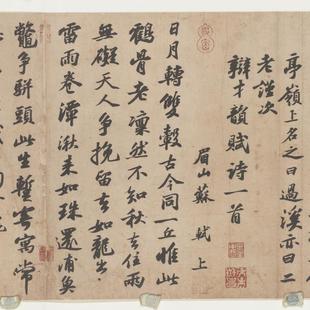 亭嶺上名之曰過溪亦曰二
老謹次
辯才韻賦詩一首
眉山蘇軾上
日月轉雙轂古今同一丘惟此
鶴骨老凛然不知秋去住兩
無礙天人爭挽留去如龍出山
雷雨卷潭湫来如珠還浦魚
鼈爭駢頭此生暫寄寓常